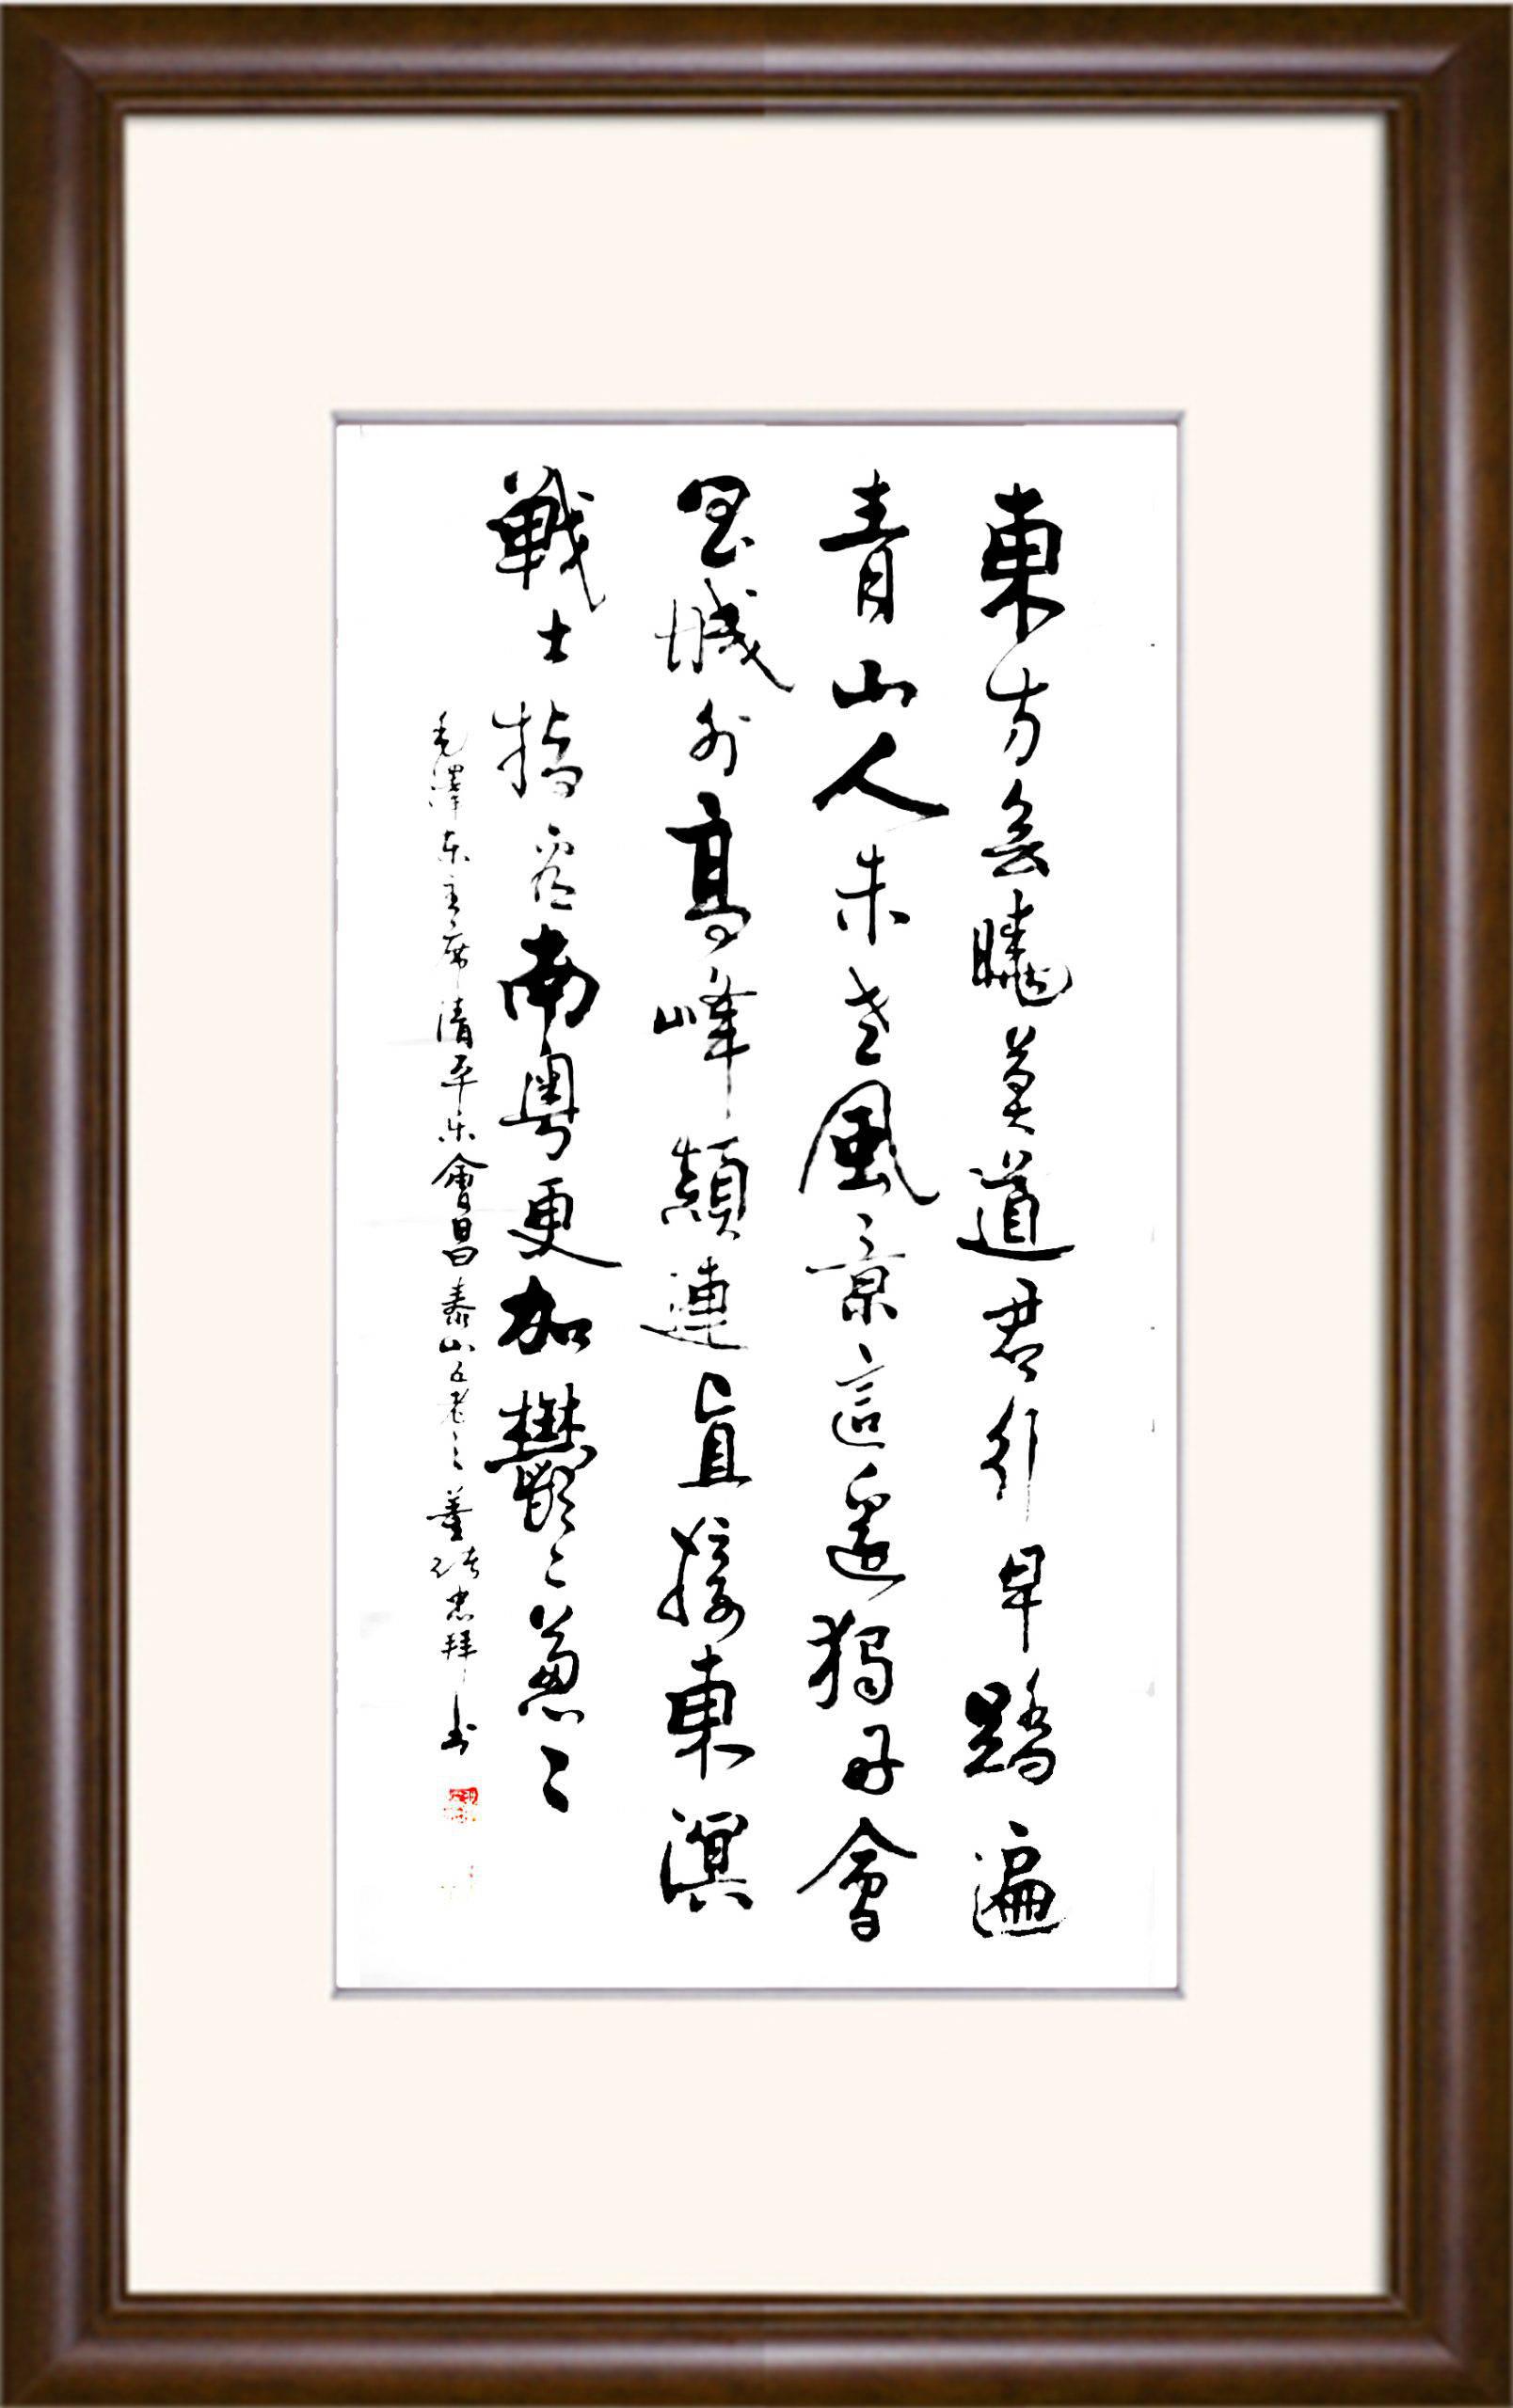 東方欲曉莫道君行早踏遍
青山人未老風景這邊獨好會
昌城外高峰顛連直接東溟
戰士指看南粵更加鬱々蔥々
毛澤东主席清平乐會昌泰山五老之董忠拜书